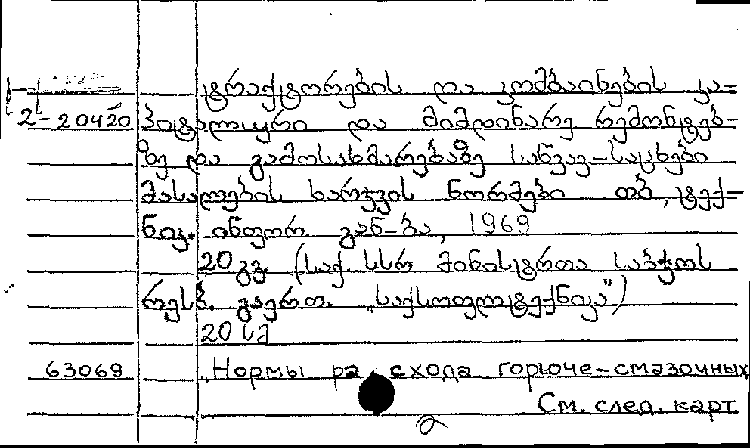 ტრაქტორების და კომბაინების კა=
2-20420 პიტალური და მიმდინარე რემონტებ-
ზე და გამოსახმარებაზე საწვავ-საცხები
მასალების ხარჯვის ნორმები თბ, ტექ-
ნიკ. ინფორ. გან-ბა, 1969
20 გვ. (საქ. სსრ მინისტრთა საბჭოს
რესპ. გაერთ. „საქსოფლტექნიკა")
20 სმ
63069 Нормы ра схода горюче-смазочных
См. след. карт